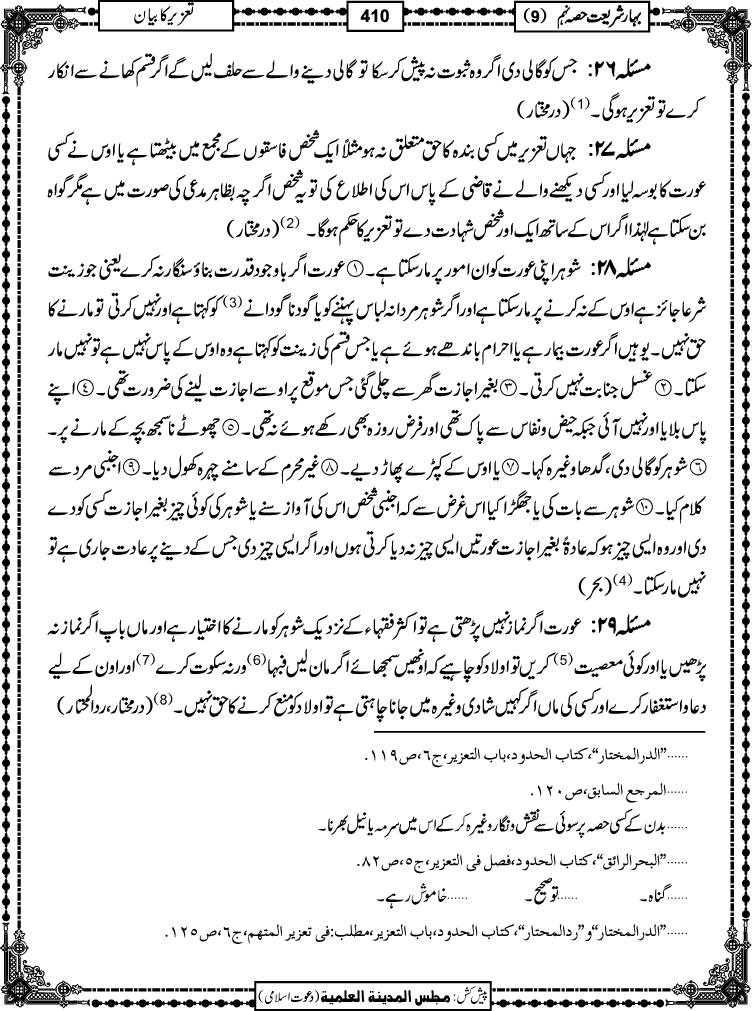 بہارِ شریعت حصہ نہم (9)
410
تعزیر کا بیان
مسئلہ ۲۶: جس کو گالی دی اگر وہ ثبوت نہ پیش کر سکا تو گالی دینے والے سے حلف لیں گے اگر قسم کھانے سے انکار
کرے تو تعزیر ہوگی۔(1) (درمختار)
مسئلہ ۲۷: جہاں تعزیر میں کسی بندہ کا حق متعلق نہ ہو مثلاً ایک شخص فاسقوں کے مجمع میں بیٹھتا ہے یا اوس نے کسی
عورت کا بوسہ لیا اور کسی دیکھنے والے نے قاضی کے پاس اس کی اطلاع کی تو یہ شخص اگرچہ بظاہر مدعی کی صورت میں ہے مگر گواہ
بن سکتا ہے لہٰذا اگر اس کے ساتھ ایک اور شخص شہادت دے تو تعزیر کا حکم ہوگا۔(2) (درمختار)
مسئلہ ۲۸: شوہر اپنی عورت کو ان امور پر مار سکتا ہے۔ ① عورت اگر باوجود قدرت بناؤ سنگار نہ کرے یعنی جو زینت
شرعاً جائز ہے اوس کے نہ کرنے پر مار سکتا ہے اور اگر شوہر مردانہ لباس پہننے کو یا گودنا گودانے(3) کو کہتا ہے اور نہیں کرتی تو مارنے کا
حق نہیں۔ یوہیں اگر عورت بیمار ہے یا احرام باندھے ہوئے ہے یا جس قسم کی زینت کو کہتا ہے وہ اوس کے پاس نہیں ہے تو نہیں مار
سکتا۔ ② غسل جنابت نہیں کرتی۔ ③ بغیر اجازت گھر سے چلی گئی جس موقع پر اوسے اجازت لینے کی ضرورت تھی۔ ④ اپنے
پاس بلایا اور نہیں آئی جبکہ حیض و نفاس سے پاک تھی اور فرض روزہ بھی رکھے ہوئے نہ تھی۔ ⑤ چھوٹے ناسمجھ بچہ کے مارنے پر۔
⑥ شوہر کو گالی دی، گدھا وغیرہ کہا۔ ⑦ یا اوس کے کپڑے پھاڑ دیے۔ ⑧ غیر محرم کے سامنے چہرہ کھول دیا۔ ⑨ اجنبی مرد سے
کلام کیا۔ ⑩ شوہر سے بات کی یا جھگڑا کیا اس غرض سے کہ اجنبی شخص اس کی آواز سنے یا شوہر کی کوئی چیز بغیر اجازت کسی کو دے
دی اور وہ ایسی چیز ہو کہ عادۃً بغیر اجازت عورتیں ایسی چیز نہ دیا کرتی ہوں اور اگر ایسی چیز دی جس کے دینے پر عادت جاری ہے تو
نہیں مار سکتا۔(4) (بحر)
مسئلہ ۲۹: عورت اگر نماز نہیں پڑھتی ہے تو اکثر فقہاء کے نزدیک شوہر کو مارنے کا اختیار ہے اور ماں باپ اگر نماز نہ
پڑھیں یا اور کوئی معصیت(5) کریں تو اولاد کو چاہیے کہ اونھیں سمجھائے اگر مان لیں فبہا(6) ورنہ سکوت کرے(7) اور اون کے لیے
دعا و استغفار کرے اور کسی کی ماں اگر کہیں شادی وغیرہ میں جانا چاہتی ہے تو اولاد کو منع کرنے کا حق نہیں۔(8) (درمختار، ردالمحتار)
......"الدرالمختار"، کتاب الحدود، باب التعزیر، ج٦، ص١١٩.
......المرجع السابق، ص١٢٠.
......بدن کے کسی حصہ پر سوئی سے نقش و نگار وغیرہ کر کے اس میں سرمہ یا نیل بھرنا۔
......"البحرالرائق"، کتاب الحدود، فصل فی التعزیر، ج٥، ص٨٢.
......گناہ۔ ......تو صحیح۔ ......خاموش رہے۔
......"الدرالمختار" و "ردالمحتار"، کتاب الحدود، باب التعزیر، مطلب: فی تعزیر المتھم، ج٦، ص١٢٥.
پیش کش: مجلس المدینة العلمیة (دعوتِ اسلامی)